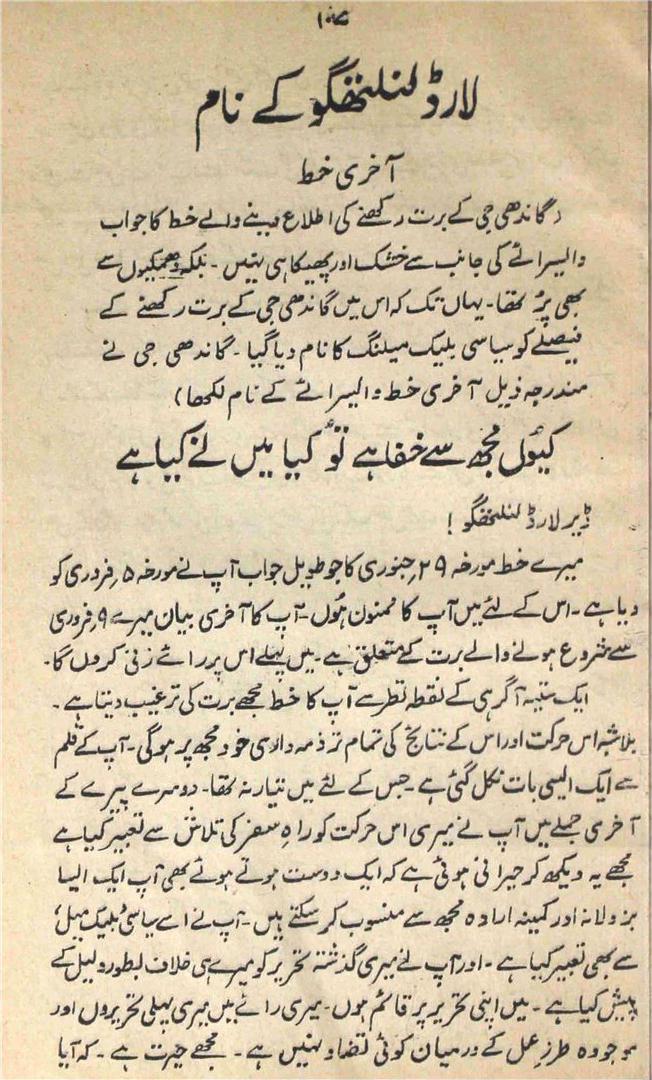 لارڈ لنلتھگو کے نام
آخری خط
(گاندھی جی کے برت رکھنے کی اطلاع دینے والے خط کا جواب
وائسرائے کی جانب سے خشک اور پھیکا ہی نہیں۔ بلکہ دھمکیوں سے
بھی پُر تھا۔ یہاں تک کہ اس میں گاندھی جی کے برت رکھنے کے
فیصلے کو سیاسی بلیک میلنگ کا نام دیا گیا۔ گاندھی جی نے
مندرجہ ذیل آخری خط وائسرائے کے نام لکھا)
کیوں مجھ سے خفا ہے تو کیا میں نے کیا ہے
ڈیر لارڈ لنلتھگو!
میرے خط مورخہ ۲۹؍جنوری کا جو طویل جواب آپ نے مورخہ ۵؍فروری کو
دیا ہے۔ اس کے لئے میں آپ کا ممنون ہوں۔ آپ کا آخری بیان میرے ۹؍فروری
سے شروع ہونے والے برت کے متعلق ہے۔ میں پہلے اس پر رائے زنی کروں گا۔
ایک ستیہ آگرہی کے نقطہ نظر سے آپ کا خط مجھے برت کی ترغیب دیتا ہے۔
بلاشبہ اس حرکت اور اس کے نتائج کی تمام تر ذمہ داری خود مجھ پر ہوگی۔ آپ کے قلم
سے ایک ایسی بات نکل گئی ہے۔ جس کے لئے میں تیار نہ تھا۔ دوسرے پیرے کے
آخری جملے میں آپ نے میری اس حرکت کو راہِ مفر کی تلاش سے تعبیر کیا ہے
مجھے یہ دیکھ کر حیرانی ہوتی ہے کہ ایک دوست ہوتے ہوئے بھی آپ ایک ایسا
بزدلانہ اور کمینہ ارادہ مجھ سے منسوب کر سکتے ہیں۔ آپ نے اسے سیاسی بلیک میل،
سے بھی تعبیر کیا ہے۔ اور آپ نے میری گذشتہ تحریر کو میرے ہی خلاف بطور دلیل کے
پیش کیا ہے۔ میں اپنی تحریر پر قائم ہوں۔ میری رائے میں میری پہلی تحریروں اور
موجودہ طرزِ عمل کے درمیان کوئی تضاد نہیں ہے۔ مجھے حیرت ہے۔ کہ آیا